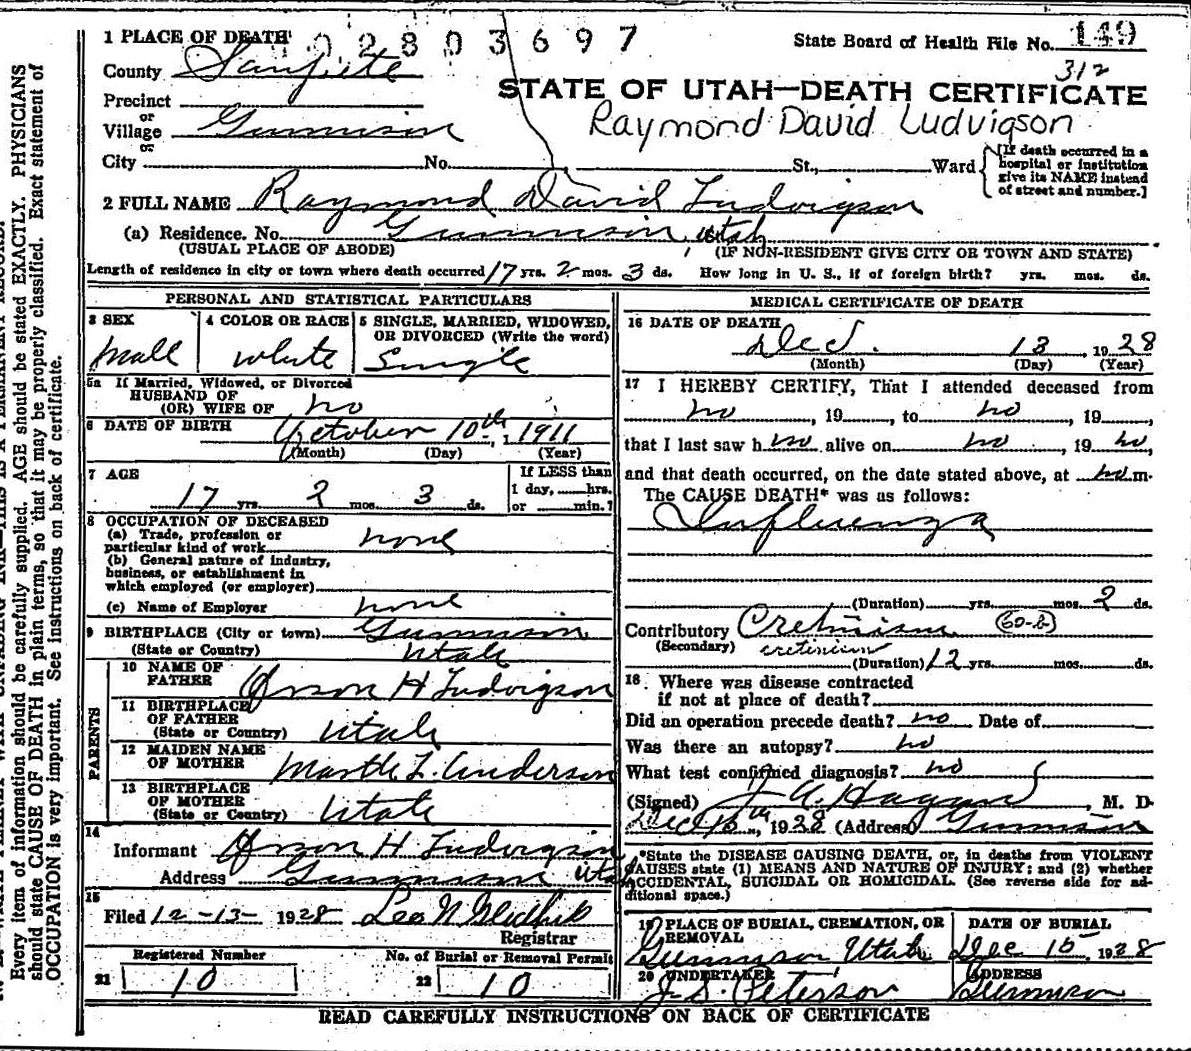 1 PLACE OF DEATH
02803697
State Board of Health File No. 149
County Sanpete
312
Precinct
or
STATE OF UTAH—DEATH CERTIFICATE
Village Gunnison
Raymond David Ludvigson
or
City No. St., Ward
[If death occurred in a
hospital or institution
give its NAME instead
of street and number.]
2 FULL NAME Raymond David Ludvigson
(a) Residence. No. Gunnison, Utah
(USUAL PLACE OF ABODE) (IF NON-RESIDENT GIVE CITY OR TOWN AND STATE)
Length of residence in city or town where death occurred 17 yrs. 2 mos. 3 ds. How long in U. S., if of foreign birth? yrs. mos. ds.
PERSONAL AND STATISTICAL PARTICULARS
3 SEX
Mall
4 COLOR OR RACE
White
5 SINGLE, MARRIED, WIDOWED,
OR DIVORCED (Write the word)
Single
5a If Married, Widowed, or Divorced
HUSBAND OF
(OR) WIFE OF no
6 DATE OF BIRTH October 10th, 1911
(Month) (Day) (Year)
7 AGE
17 yrs. 2 mos. 3 ds.
If LESS than
1 day, hrs.
or min.?
8 OCCUPATION OF DECEASED
(a) Trade, profession or
particular kind of work none
(b) General nature of industry,
business, or establishment in
which employed (or employer)
(c) Name of Employer none
9 BIRTHPLACE (City or town) Gunnison
(State or Country) Utah
PARENTS
10 NAME OF
FATHER Orson H Ludvigson
11 BIRTHPLACE
OF FATHER
(State or Country) Utah
12 MAIDEN NAME
OF MOTHER L. Anderson
13 BIRTHPLACE
OF MOTHER
(State or Country) Utah
14
Informant Orson H Ludvigson
Address Gunnison Utah
15
Filed 12-13- 1928 Leo N
Registrar
Registered Number
21 10
No. of Burial or Removal Permit
22 10
MEDICAL CERTIFICATE OF DEATH
16 DATE OF DEATH
Dec. 13, 1928
(Month) (Day) (Year)
17 I HEREBY CERTIFY, That I attended deceased from
no, 19 , to no, 19 ,
that I last saw h no alive on no, 19 no,
and that death occurred, on the date stated above, at no m.
The CAUSE DEATH* was as follows:
Influenza
(Duration) yrs. mos. 2 ds.
Contributory Cretinism (60-b)
(Secondary) cretinism
(Duration) 12 yrs. mos. ds.
18. Where was disease contracted
if not at place of death?
Did an operation precede death? no Date of
Was there an autopsy? no
What test confirmed diagnosis? no
(Signed) J A Hagan, M. D.
Dec 15th, 1928 (Address) Gunnison
*State the DISEASE CAUSING DEATH, or, in deaths from VIOLENT
CAUSES state (1) MEANS AND NATURE OF INJURY; and (2) whether
ACCIDENTAL, SUICIDAL OR HOMICIDAL. (See reverse side for ad-
ditional space.)
19 PLACE OF BURIAL, CREMATION, OR
REMOVAL
Gunnison Utah
DATE OF BURIAL
Dec 15 1928
20 UNDERTAKER
J. S. Peterson
ADDRESS
Gunnison
READ CAREFULLY INSTRUCTIONS ON BACK OF CERTIFICATE
Every item of information should be carefully supplied. AGE should be stated EXACTLY. PHYSICIANS
should state CAUSE OF DEATH in plain terms, so that it may be properly classified. Exact statement of
OCCUPATION is very important. See instructions on back of certificate.